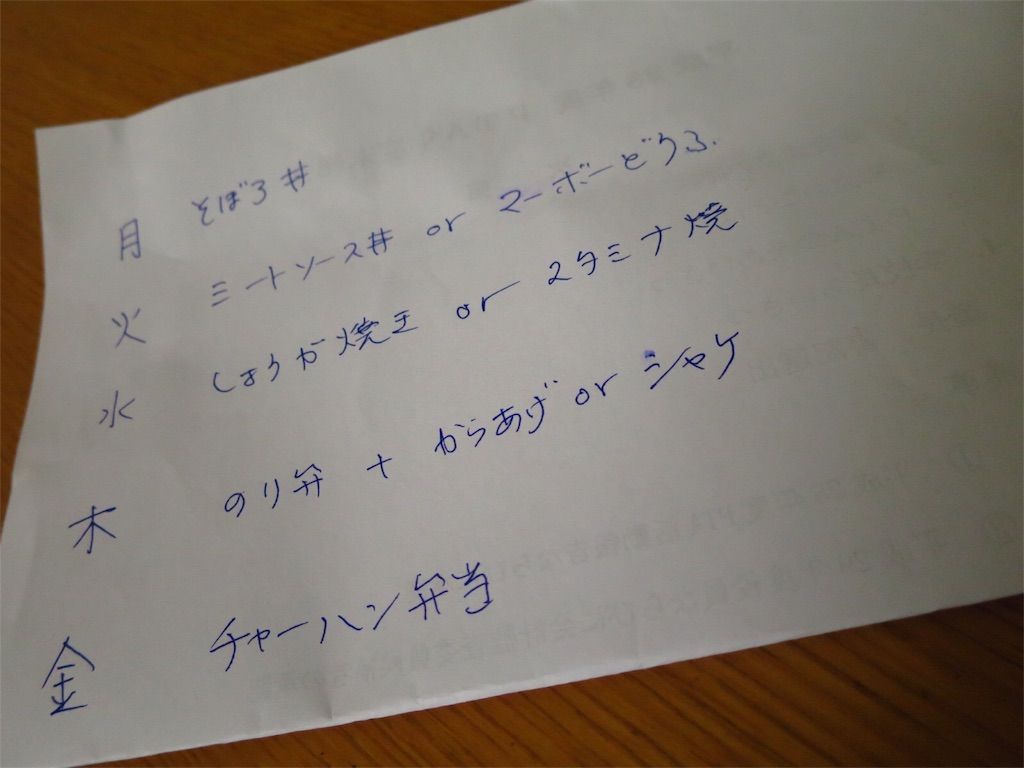 月 そぼろ丼
火 ミートソース丼 or マーボーどうふ.
水 しょうが焼き or スタミナ焼
木 のり弁 + からあげ or シャケ
金 チャーハン弁当